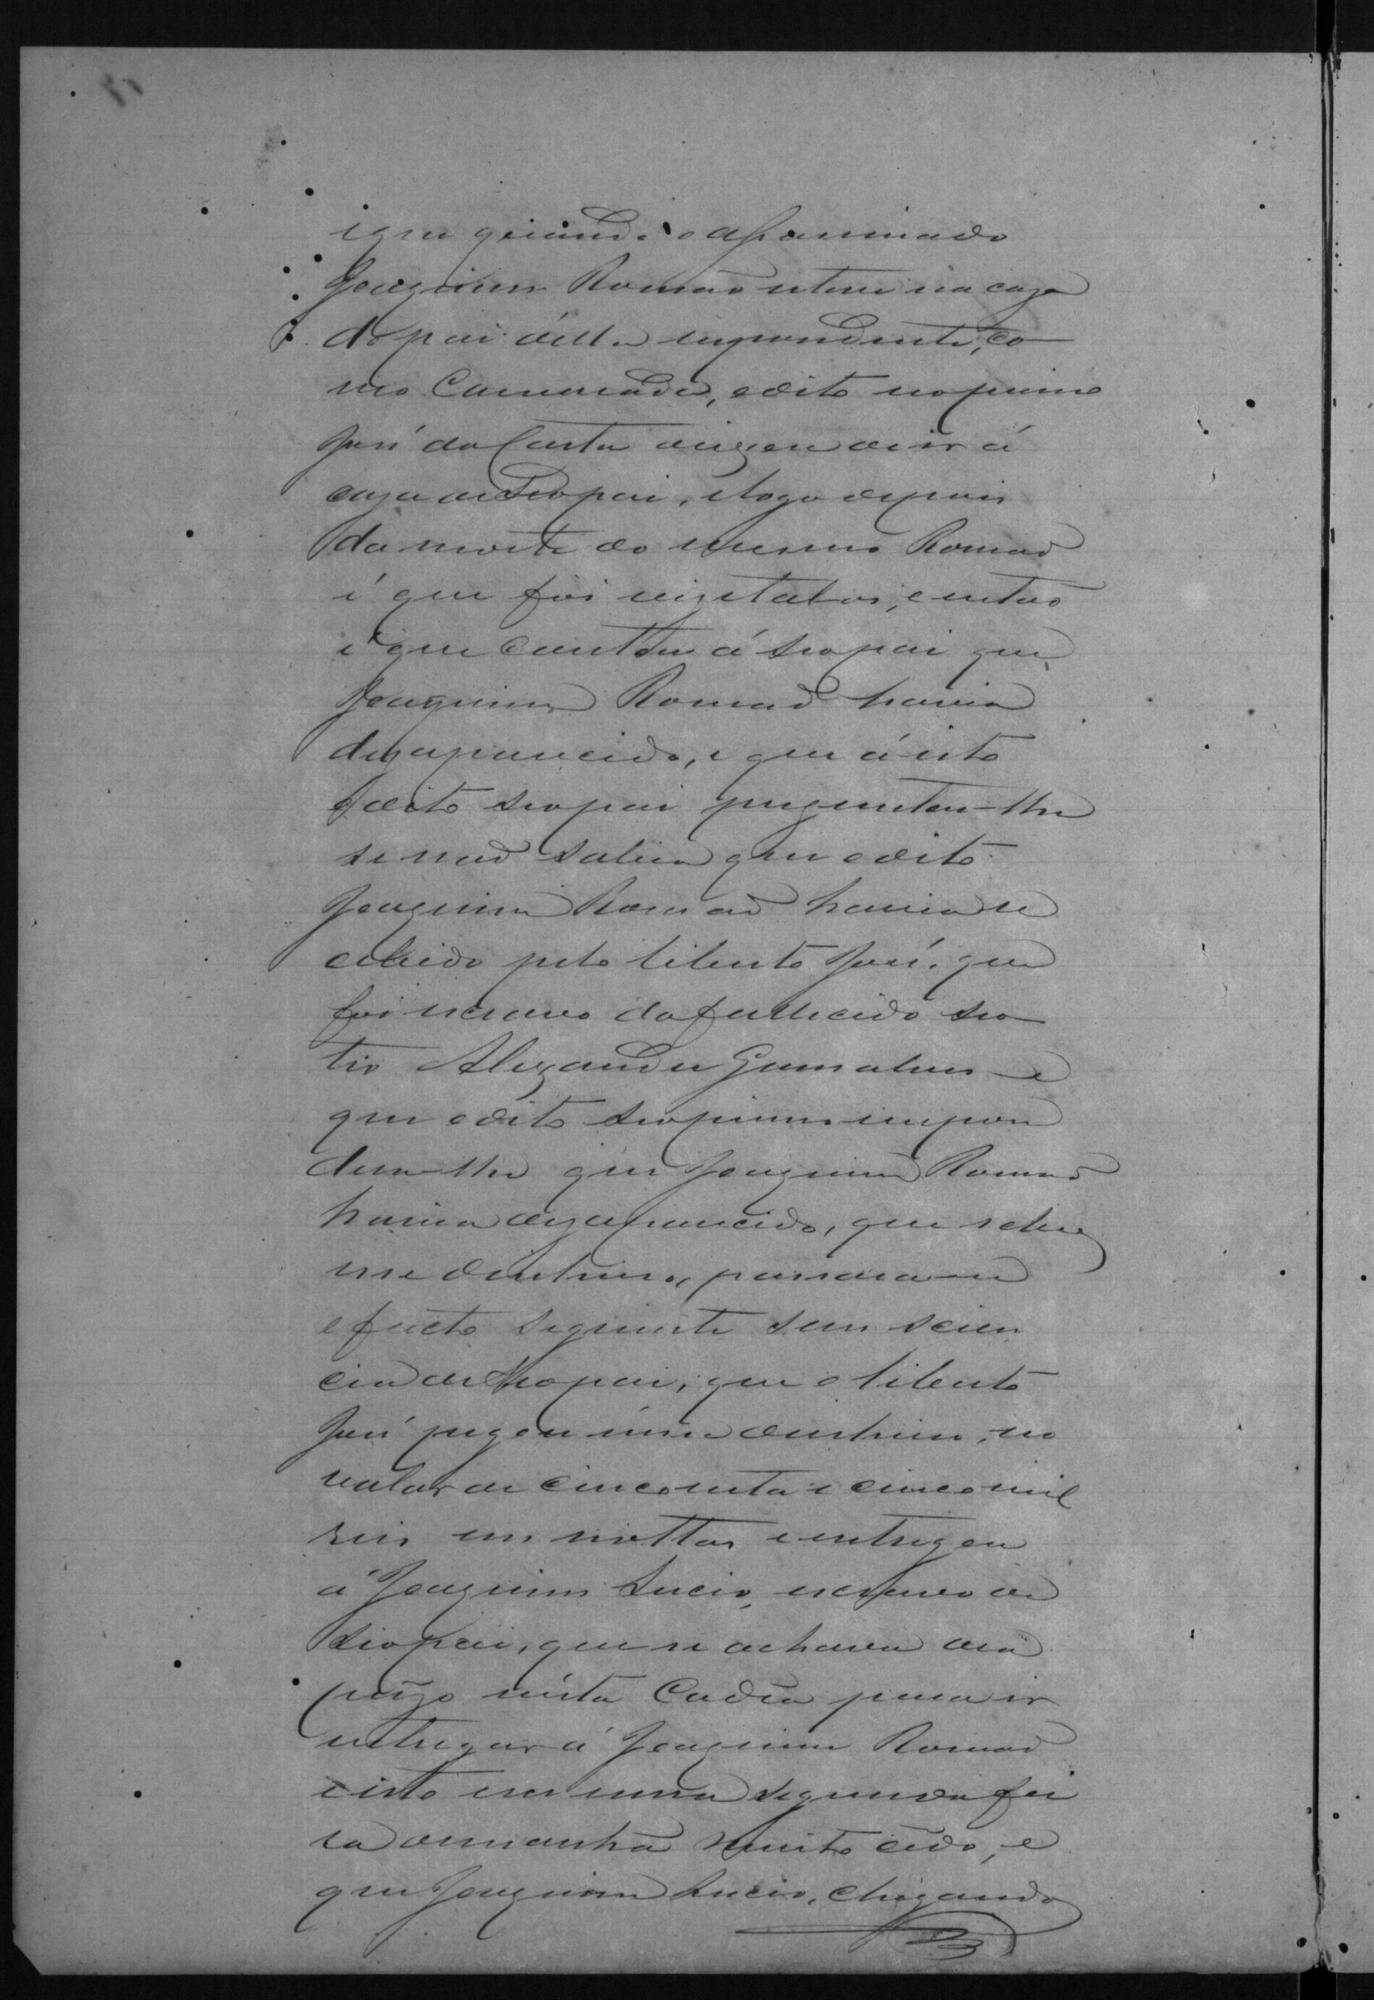 e que quando o assassinado
Joaquim Romão esteve na caza
do pai délla respondente, co-
mo Camarada, o dito seo primo
José da Costa deixou de ir á
caza de seo pai, e logo depois
da morte do mesmo Romão
é que foi vizital-os, e então
é que contou á seo pai que
Joaquim Romão havia
dezaparecido, e que á isto
o dito seo pai preguntou-lhe
se não sabia que o dito
Joaquim Romão havia re
cebido pelo liberto José, que
foi escravo do fallecido seo
tio Alexandre Gonsalves e
que o dito seo primo respon
dera-lhe que Joaquim Romão
havia dezaparecido, que sobre
esse dinheiro, passara-se
o facto seguinte sem scien
cia de seo pai, que o liberto
José pegou n'um dinheiro, no
valor de cincoenta e cinco mil
reis em nottas e entregou
á Joaquim Lucio, escravo de
seo pai, que se achava de
prezo nésta Cadêa para ir
entregar á Joaquim Romão
e isto em uma segunda fei
ra de manhã muito cêdo, e
que Joaquim Lucio, chegando